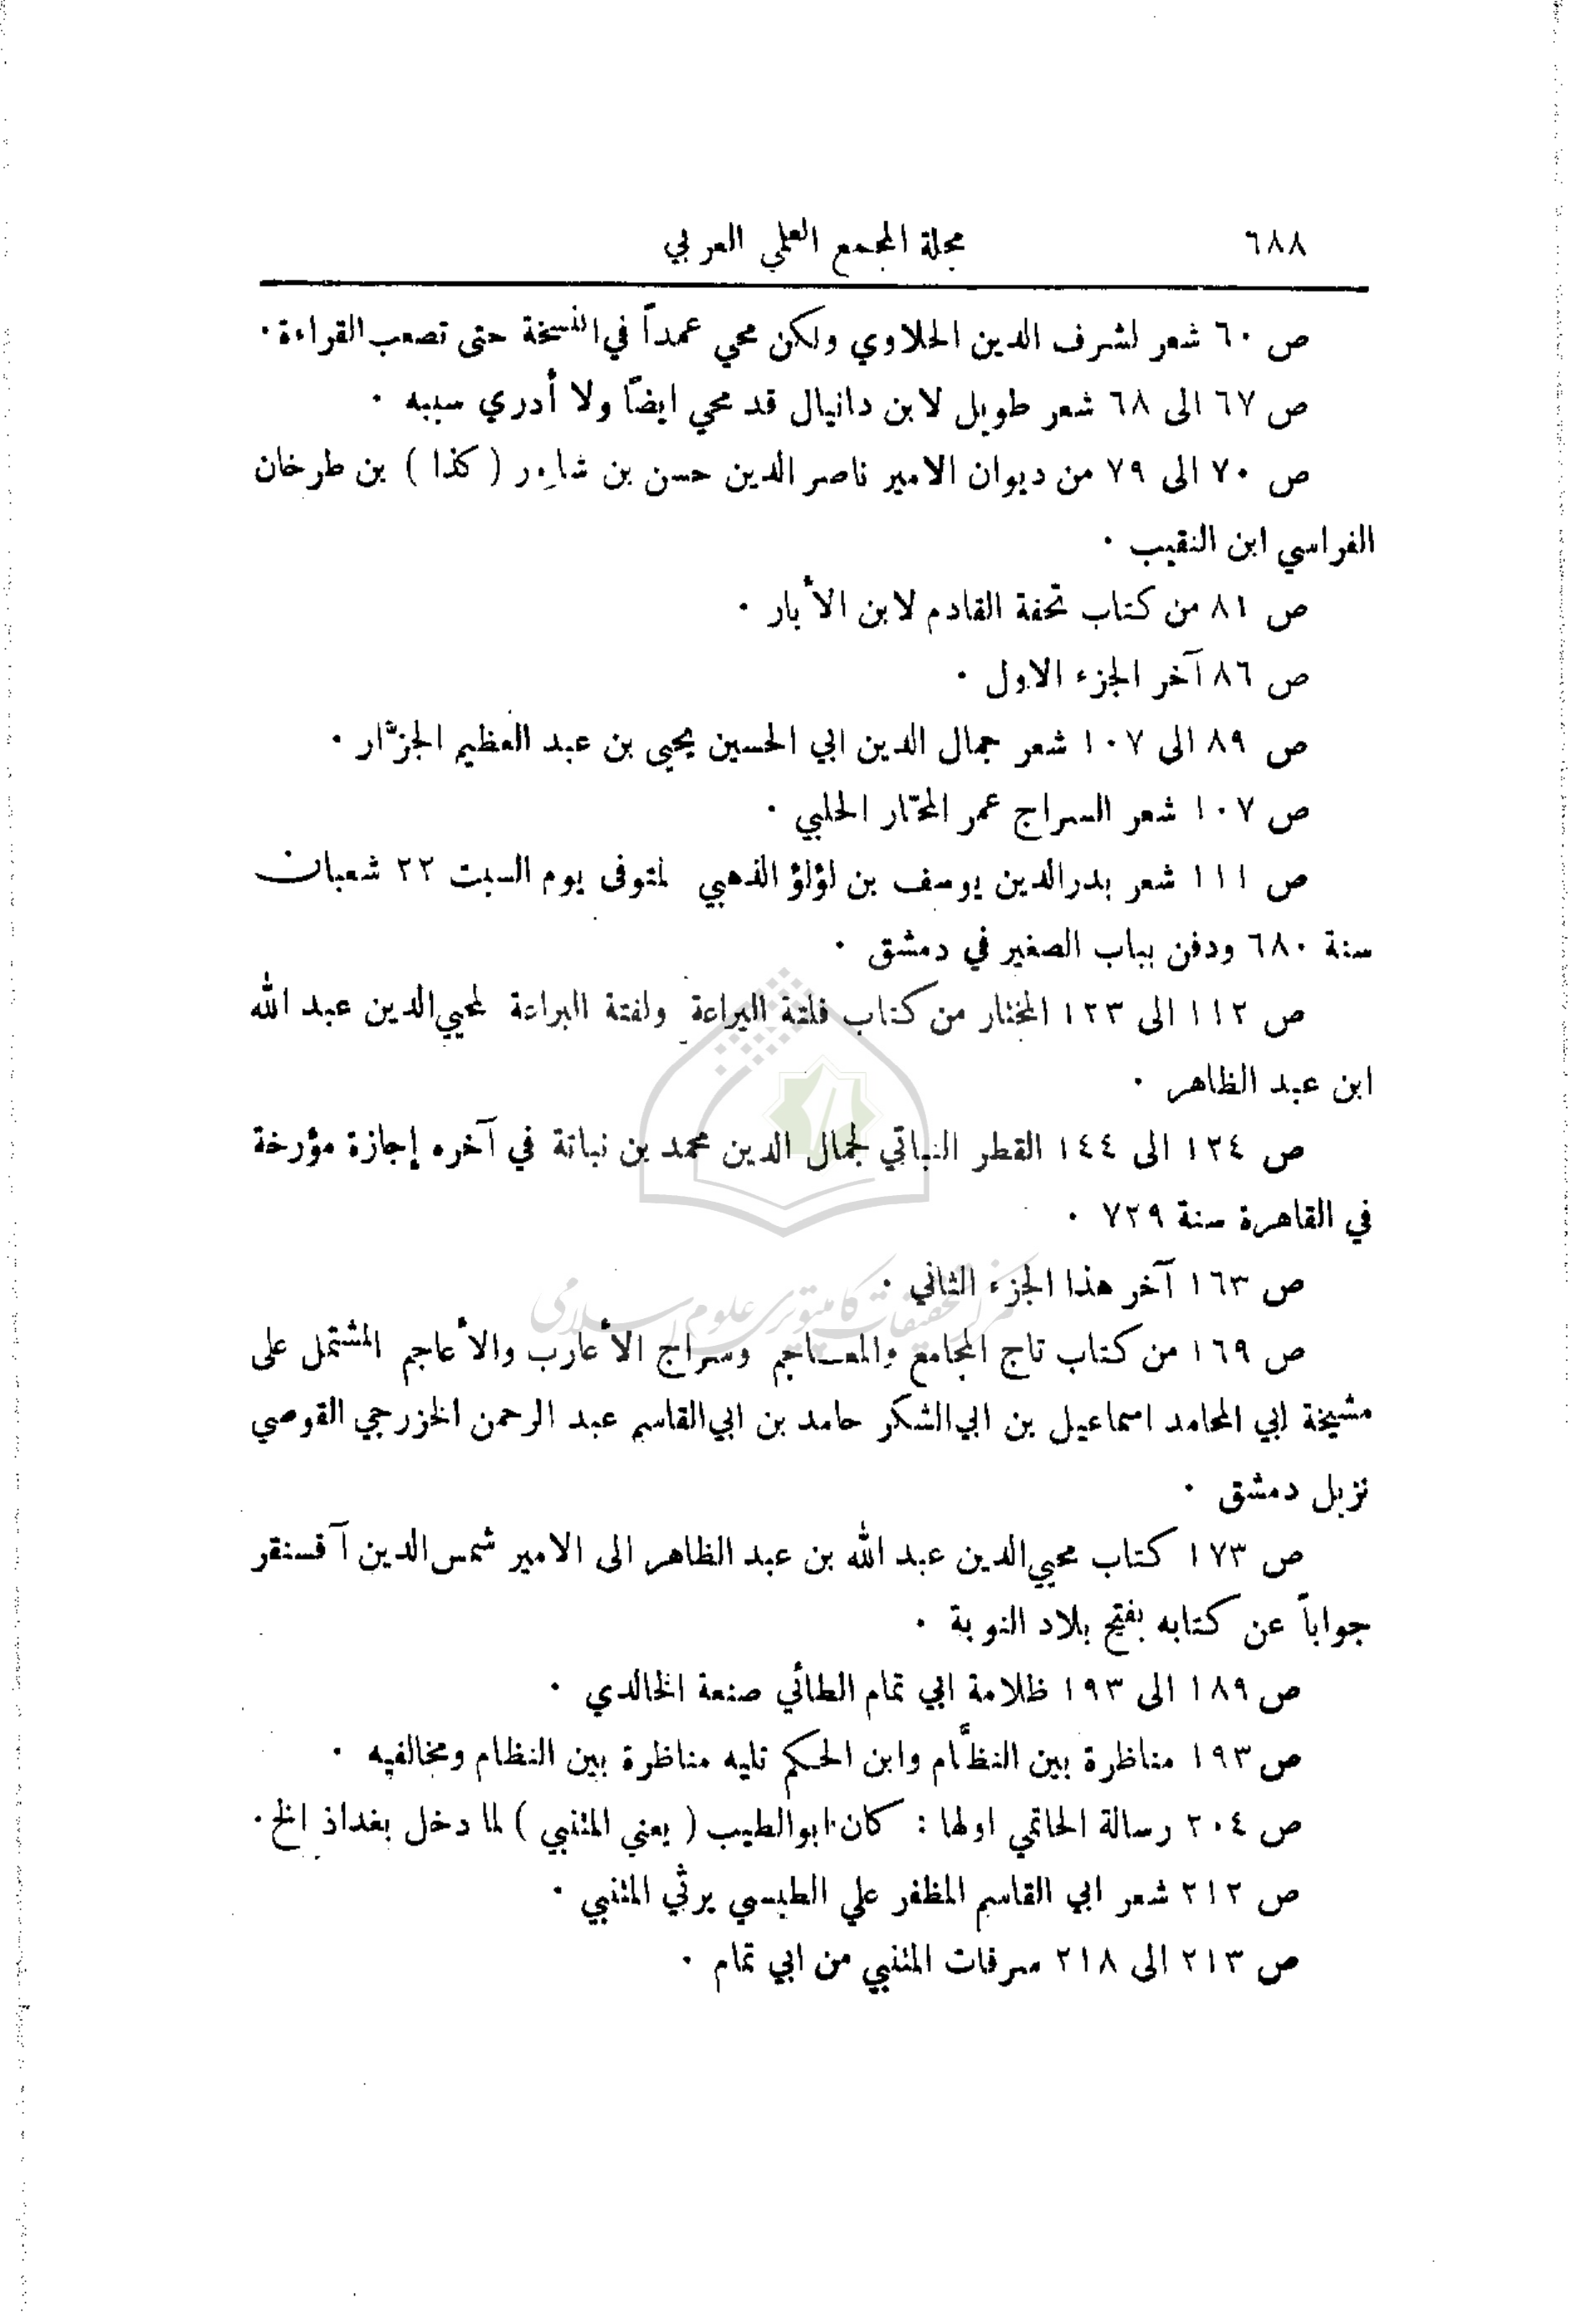 ٦٨٨ مجلة المجمع العلمي العربي
ص ٦٠ شعر لشرف الدين الحلاوي ولكن محي عمداً في النسخة حتى تصعب القراءة .
ص ٦٧ الى ٦٨ شعر طويل لابن دانيال قد محي ايضاً ولا أدري سببه .
ص ٧٠ الى ٧٩ من ديوان الامير ناصر الدين حسن بن شاور ( كذا ) بن طرخان
الفراسي ابن النقيب .
ص ٨١ من كتاب تحفة القادم لابن الأبار .
ص ٨٦ آخر الجزء الاول .
ص ٨٩ الى ١٠٧ شعر جمال الدين ابي الحسين يحيى بن عبد العظيم الجزّار .
ص ١٠٧ شعر السراج عمر المحّار الحلبي .
ص ١١١ شعر بدر الدين يوسف بن لؤلؤ الذهبي لمتوفى يوم السبت ٢٢ شعبان
سنة ٦٨٠ ودفن بباب الصغير في دمشق .
ص ١١٢ الى ١٢٣ المختار من كتاب فلتة اليراعة ولفتة البراعة لمحيي الدين عبد الله
ابن عبد الظاهر .
ص ١٢٤ الى ١٤٤ القطر النباتي لجمال الدين محمد بن نباتة في آخره إجازة مؤرخة
في القاهرة سنة ٧٢٩ .
ص ١٦٣ آخر هذا الجزء الثاني .
مركز تحقيقات كامپيوترى علوم اسلامى
ص ١٦٩ من كتاب تاج المجامع والمعاجم وسراج الأعارب والأعاجم المشتمل على
مشيخة ابي المحامد اسماعيل بن ابي الشكر حامد بن ابي القاسم عبد الرحمن الخزرجي القوصي
نزيل دمشق .
ص ١٧٣ كتاب محيي الدين عبد الله بن عبد الظاهر الى الامير شمس الدين آقسنقر
جواباً عن كتابه بفتح بلاد النوبة .
ص ١٨٩ الى ١٩٣ ظلامة ابي تمام الطائي صنعة الخالدي .
ص ١٩٣ مناظرة بين النظّام وابن الحكم تليه مناظرة بين النظام ومخالفيه .
ص ٢٠٤ رسالة الحاتمي اولها : كان ابو الطيب ( يعني المتنبي ) لما دخل بغداذ الخ .
ص ٢١٢ شعر ابي القاسم المظفر علي الطبسي يرثي المتنبي .
ص ٢١٣ الى ٢١٨ سرقات المتنبي من ابي تمام .